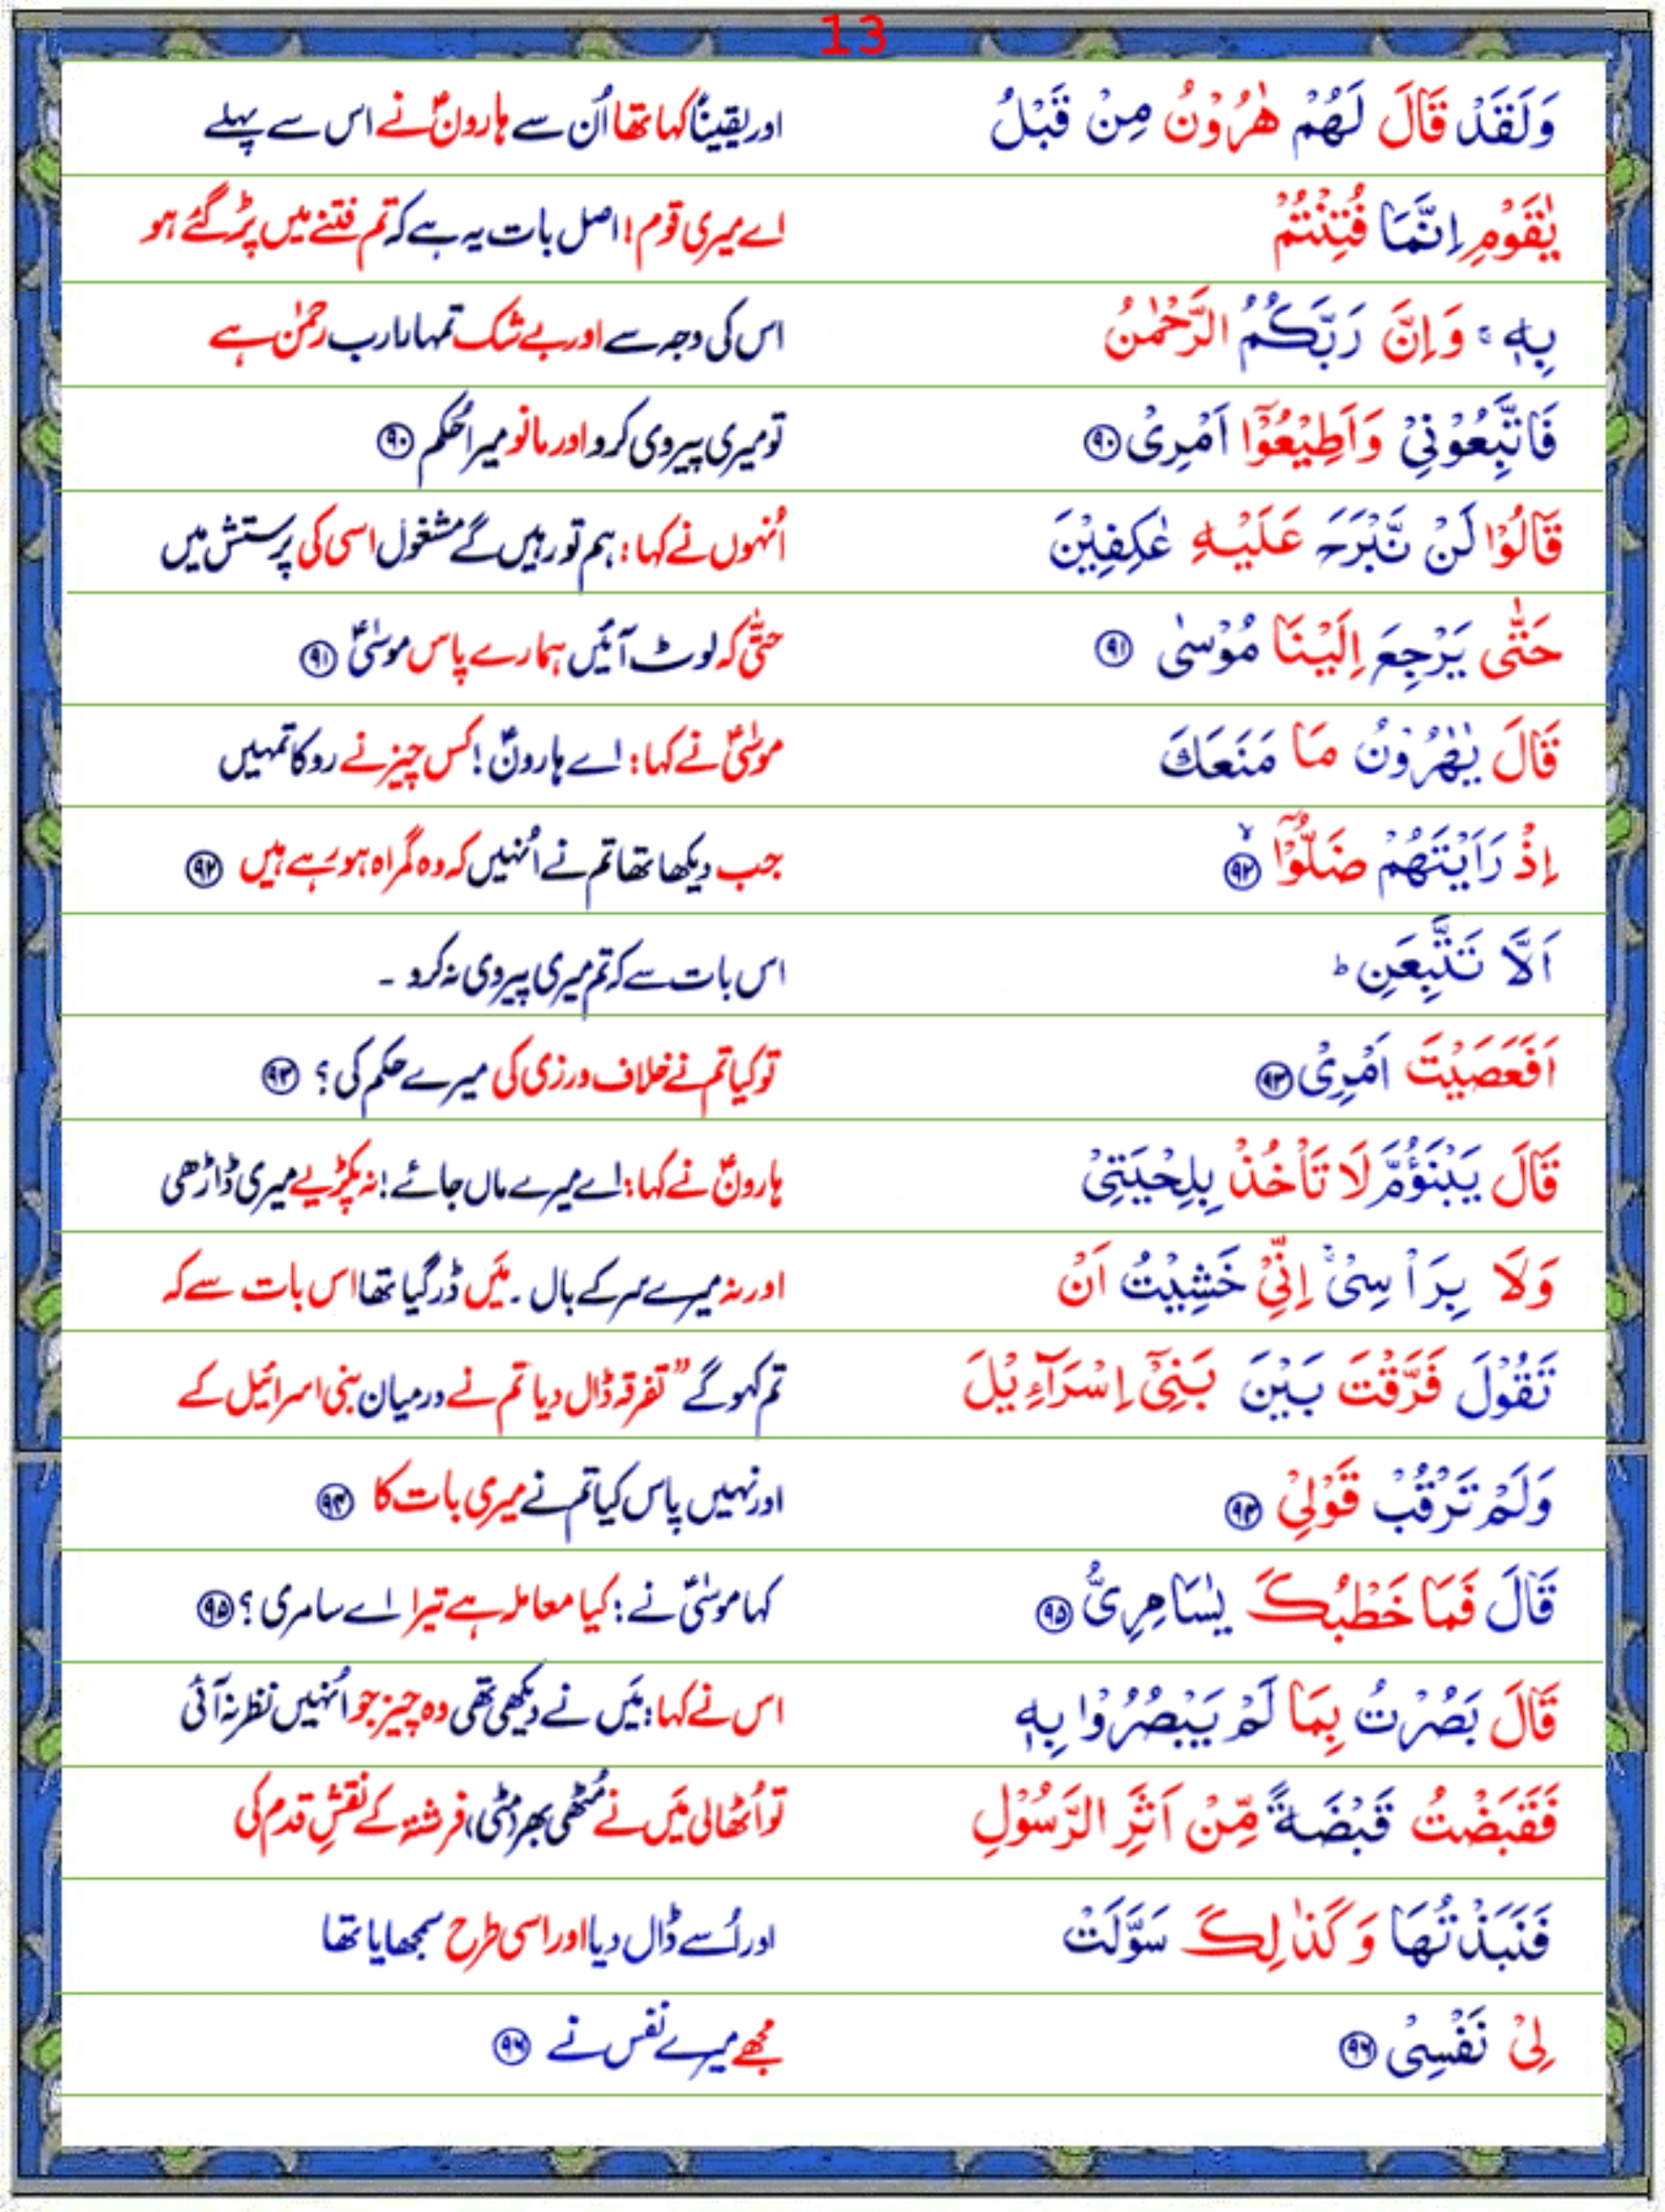 13
وَلَقَدْ قَالَ لَهُمْ هٰرُوْنُ مِنْ قَبْلُ اور یقیناً کہا تھا اُن سے ہارونؑ نے اس سے پہلے
يٰقَوْمِ اِنَّمَا فُتِنْتُمْ اے میری قوم! اصل بات یہ ہے کہ تم فتنے میں پڑ گئے ہو
بِهٖ ۚ وَاِنَّ رَبَّكُمُ الرَّحْمٰنُ اس کی وجہ سے اور بے شک تمہارا رب رحمٰن ہے
فَاتَّبِعُوْنِيْ وَاَطِيْعُوْٓا اَمْرِيْ ۹۰ تو میری پیروی کرو اور مانو میرا حُکم ۹۰
قَالُوْا لَنْ نَّبْرَحَ عَلَيْهِ عٰكِفِيْنَ اُنہوں نے کہا: ہم تو رہیں گے مشغول اسی کی پرستش میں
حَتّٰى يَرْجِعَ اِلَيْنَا مُوْسٰى ۹۱ حتّٰی کہ لوٹ آئیں ہمارے پاس موسٰیؑ ۹۱
قَالَ يٰهٰرُوْنُ مَا مَنَعَكَ موسٰیؑ نے کہا: اے ہارونؑ! کس چیز نے روکا تمہیں
اِذْ رَاَيْتَهُمْ ضَلُّوْٓا ۙ ۹۲ جب دیکھا تھا تم نے اُنہیں کہ وہ گمراہ ہو رہے ہیں ۹۲
اَلَّا تَتَّبِعَنِ ط اس بات سے کہ تم میری پیروی نہ کرو ۔
اَفَعَصَيْتَ اَمْرِيْ ۹۳ تو کیا تم نے خلاف ورزی کی میرے حکم کی؟ ۹۳
قَالَ يَبْنَؤُمَّ لَا تَاْخُذْ بِلِحْيَتِيْ ہارونؑ نے کہا: اے میرے ماں جائے! نہ پکڑیے میری ڈاڑھی
وَلَا بِرَاْسِيْ ۚ اِنِّيْ خَشِيْتُ اَنْ اور نہ میرے سر کے بال ۔ مَیں ڈر گیا تھا اس بات سے کہ
تَقُوْلَ فَرَّقْتَ بَيْنَ بَنِيْٓ اِسْرَآءِيْلَ تم کہو گے ”تفرقہ ڈال دیا تم نے درمیان بنی اسرائیل کے
وَلَمْ تَرْقُبْ قَوْلِيْ ۹۴ اور نہیں پاس کیا تم نے میری بات کا ۹۴
قَالَ فَمَا خَطْبُكَ يٰسَامِرِيُّ ۹۵ کہا موسٰیؑ نے: کیا معاملہ ہے تیرا اے سامری؟ ۹۵
قَالَ بَصُرْتُ بِمَا لَمْ يَبْصُرُوْا بِهٖ اس نے کہا: مَیں نے دیکھی تھی وہ چیز جو اُنہیں نظر نہ آئی
فَقَبَضْتُ قَبْضَةً مِّنْ اَثَرِ الرَّسُوْلِ تو اُٹھا لی مَیں نے مُٹھی بھر (مٹی) فرشتہ کے نقشِ قدم کی
فَنَبَذْتُهَا وَكَذٰلِكَ سَوَّلَتْ اور اُسے ڈال دیا اور اسی طرح سمجھایا تھا
لِيْ نَفْسِيْ ۹۶ مجھے میرے نفس نے ۹۶